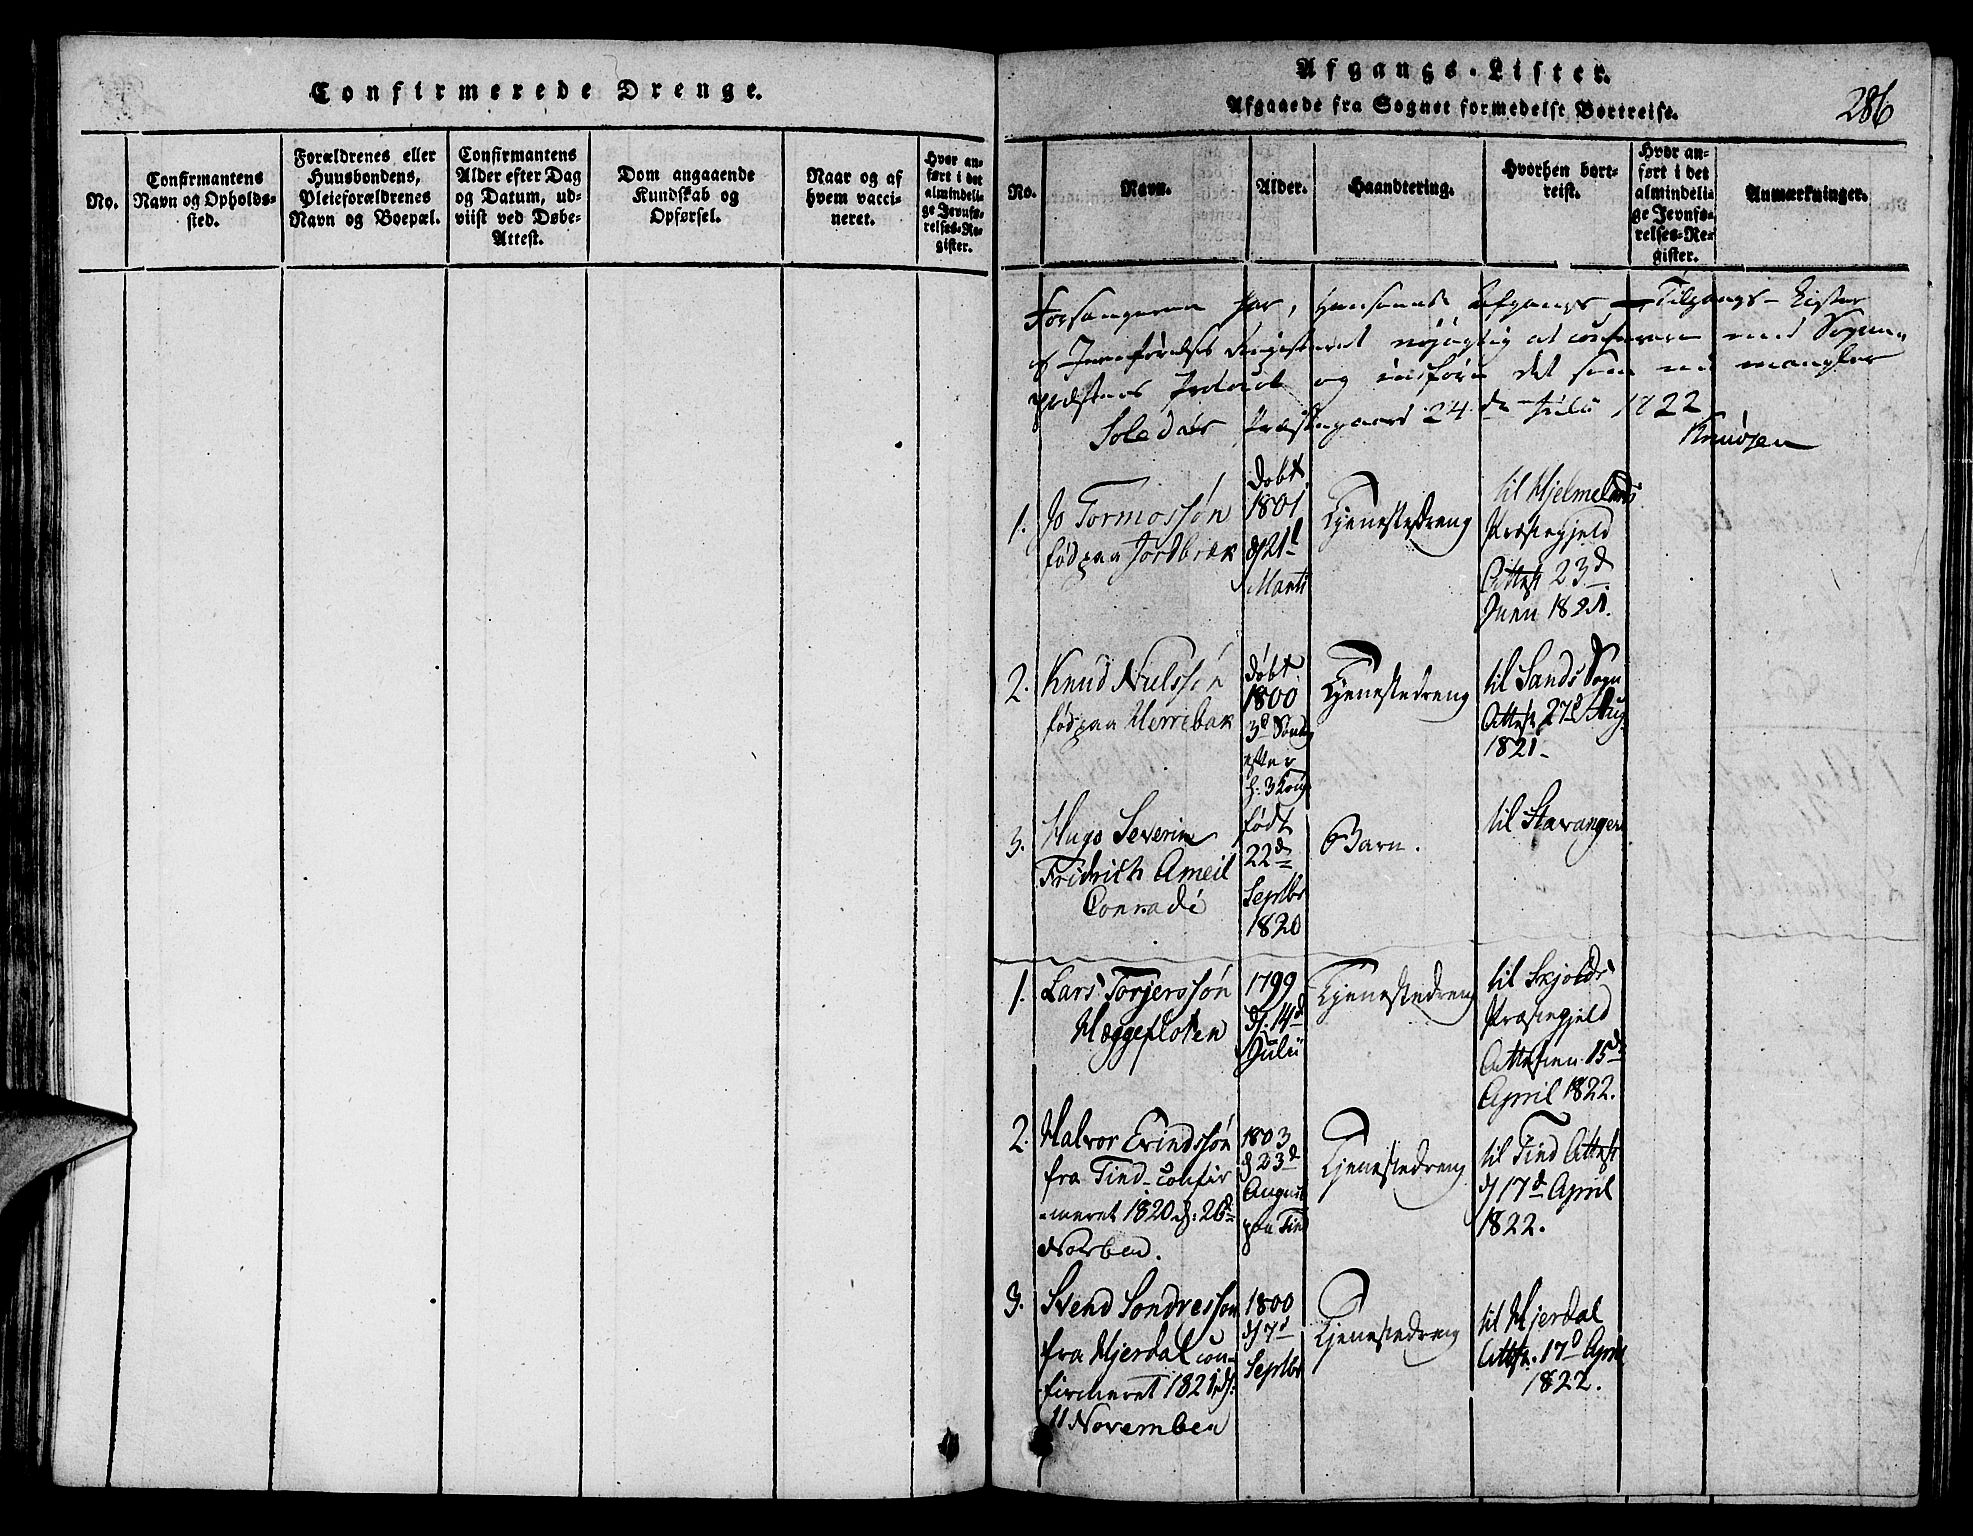 Confirmerede Drenge.
No.
Confirmantens
Navn og Opholds-
sted.
Forældrenes eller
Huusbondens,
Pleieforældrenes
Navn og Boepæl.
Confirmantens
Alder efter Dag
og Datum, ud-
viist ved Døbe-
Attest.
Dom angaaende
Kundskab og
Opførsel.
Naar og af
hvem vacci-
neret.
Hvor an-
ført i det
almindeli-
ge Jevnfø-
relses-Re-
gister.
Afgangs-Lister.
Afgaaede fra Sognet formedelst Bortreise.
286
No.
Navn.
Alder.
Haandtering.
Hvorhen bort-
reist.
Hvor an-
ført i det
almindeli-
ge Jevnfø-
relses-Re-
gister.
Anmærkninger.
Forsangeren har, Afgangs Tilgangs-Lister
Jevnførelses Registeret nøjagtig at conferere med Sogne-
præstens Protocol og indføre det som nu mangler
Præstegaard 24de Julii 1822
Knudsen
1. Jo Tormossøn
født paa Jordbræk
døbt
1801
d 21d
Marti
Tjenestedreng
til Hjelmelands
Præstegjeld
Attest 23d
Juni 1821.
2. Knud Nielssøn
født paa Herrebak
døbt
1800
3d Søndag
efter
h. 3 Kong
Tjenestedreng
til Sands Sogn
Attest 27d Aug
1821
3. Hugo Severin
Fridrich Ameil
Conradi
født
22d
Septbr
1820
Barn.
til Stavanger
1. Lars Torjerssøn
Hæggefloten
1799
d. 14d
Julii
Tjenestedreng
til Skjolds
Præstegjeld
Attesten 15d
April 1822.
2. Halvor Evindssøn
fra Tind confir
-meret 1820 d: 26d
Norben.
1803
d 23d
August
paa Tind
Tjenestedreng
til Tind Attest
d 17d April
1822.
3. Svend Sondressøn
fra Hjerdal con-
firmeret 1821 d:
11 November
1800
d 7d
Septbr
Tjenestedreng
til Hjerdal
Attest. 17d April
1822.